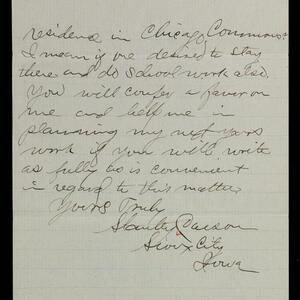 residence in Chicago Commons?
I mean if one desired to stay
there and do school work also.
You will confer a favor on
me and help me in
planning my next years
work if you will write
as fully as is convenient
in regard to this matter
Yours Truly
Stanley
Sioux City
Iowa